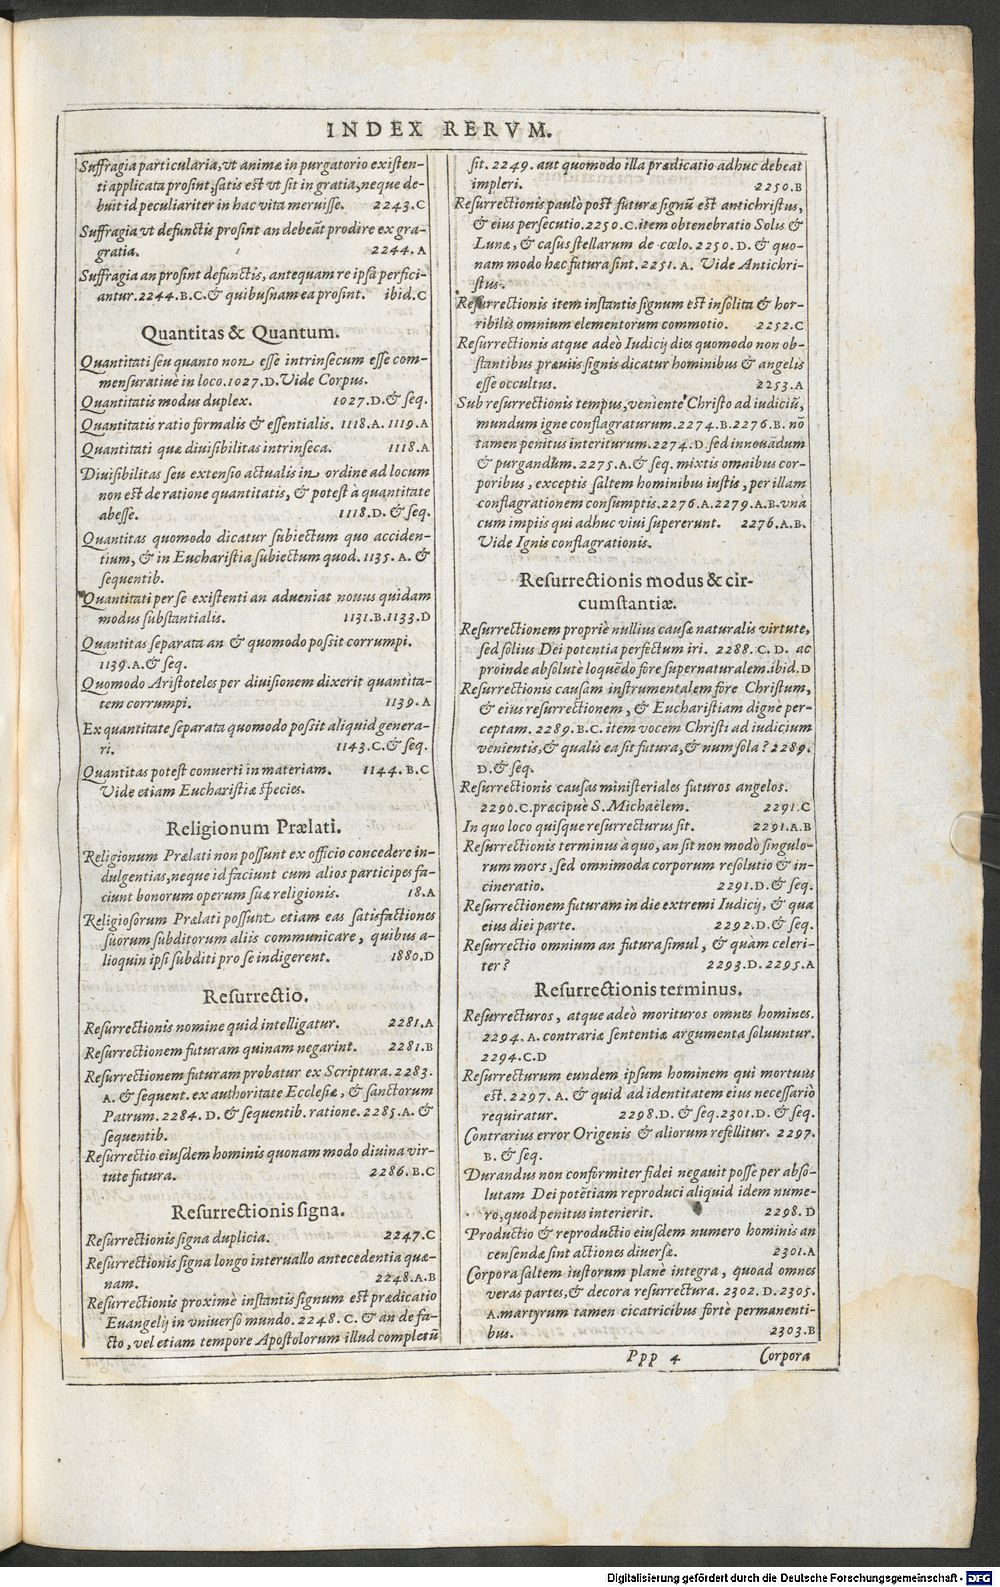 INDEX RERVM.
Suffragia particularia, vt animæ in purgatorio existen-
ti applicata prosint, satis est vt sit in gratia, neque de-
buit id peculiariter in hac vita meruisse. 2243.C
Suffragia vt defunctis prosint an debeāt prodire ex gra-
gratia. 2244.A
Suffragia an prosint defunctis, antequam re ipsa perfici-
antur. 2244.B.C. & quibusnam ea prosint. ibid.C
Quantitas & Quantum.
Quantitati seu quanto non esse intrinsecum esse com-
mensuratiuè in loco. 1027.D. Vide Corpus.
Quantitatis modus duplex. 1027.D. & seq.
Quantitatis ratio formalis & essentialis. 1118.A. 1119.A
Quantitati quæ diuisibilitas intrinseca. 1118.A
Diuisibilitas seu extensio actualis in ordine ad locum
non est de ratione quantitatis, & potest à quantitate
abesse. 1118.D. & seq.
Quantitas quomodo dicatur subiectum quo acciden-
tium, & in Eucharistia subiectum quod. 1135. A. &
sequentib.
Quantitati per se existenti an adueniat nouus quidam
modus substantialis. 1131.B. 1133.D
Quantitas separata an & quomodo possit corrumpi.
1139.A. & seq.
Quomodo Aristoteles per diuisionem dixerit quantita-
tem corrumpi. 1139.A
Ex quantitate separata quomodo possit aliquid genera-
ri. 1143.C. & seq.
Quantitas potest conuerti in materiam. 1144. B.C
Vide etiam Eucharistiæ species.
Religionum Prælati.
Religionum Prælati non possunt ex officio concedere in-
dulgentias, neque id faciunt cum alios participes fa-
ciunt bonorum operum suæ religionis. 18.A
Religiosorum Prælati possunt etiam eas satisfactiones
suorum subditorum aliis communicare, quibus a-
lioquin ipsi subditi pro se indigerent. 1880.D
Resurrectio.
Resurrectionis nomine quid intelligatur. 2281.A
Resurrectionem futuram quinam negarint. 2281.B
Resurrectionem futuram probatur ex Scriptura. 2283.
A. & sequent. ex authoritate Ecclesiæ, & sanctorum
Patrum. 2284. D. & sequentib. ratione. 2285.A. &
sequentib.
Resurrectio eiusdem hominis quonam modo diuina vir-
tute futura. 2286.B.C
Resurrectionis signa.
Resurrectionis signa duplicia. 2247.C
Resurrectionis signa longo interuallo antecedentia quæ-
nam. 2248.A.B
Resurrectionis proximè instantis signum est prædicatio
Euangelij in vniuerso mundo. 2248. C. & an de fa-
cto, vel etiam tempore Apostolorum illud completū
sit. 2249. aut quomodo illa prædicatio adhuc debeat
impleri. 2250.B
Resurrectionis paulò post futuræ signū est antichristus,
& eius persecutio. 2250.C. item obtenebratio Solis &
Lunæ, & casus stellarum de cœlo. 2250. D. & quo-
nam modo hæc futura sint. 2251. A. Vide Antichri-
stus.
Resurrectionis item instantis signum est insolita & hor-
ribilis omnium elementorum commotio. 2252.C
Resurrectionis atque adeò Iudicij dies quomodo non ob-
stantibus præuiis signis dicatur hominibus & angelis
esse occultus. 2253.A
Sub resurrectionis tempus, veniente Christo ad iudiciū,
mundum igne conflagraturum. 2274.B. 2276.B. nō
tamen penitus interiturum. 2274.D. sed innouādum
& purgandum. 2275.A. & seq. mixtis omnibus cor-
poribus, exceptis saltem hominibus iustis, per illam
conflagrationem consumptis. 2276.A. 2279.A.B. vna
cum impiis qui adhuc viui supererunt. 2276.A.B.
Vide Ignis conflagrationis.
Resurrectionis modus & cir-
cumstantiæ.
Resurrectionem propriè nullius causæ naturalis virtute,
sed solius Dei potentia perfectum iri. 2288. C. D. ac
proinde absolutè loquēdo fore supernaturalem. ibid.D
Resurrectionis causam instrumentalem fore Christum,
& eius resurrectionem, & Eucharistiam dignè per-
ceptam. 2289.B.C. item vocem Christi ad iudicium
venientis, & qualis ea sit futura, & num sola? 2289.
D. & seq.
Resurrectionis causas ministeriales futuros angelos.
2290.C. præcipuè S. Michaëlem. 2291.C
In quo loco quisque resurrecturus sit. 2291.A.B
Resurrectionis terminus à quo, an sit non modò singulo-
rum mors, sed omnimoda corporum resolutio & in-
cineratio. 2291.D. & seq.
Resurrectionem futuram in die extremi Iudicij, & qua
eius diei parte. 2292.D. & seq.
Resurrectio omnium an futura simul, & quàm celeri-
ter? 2293.D. 2295.A
Resurrectionis terminus.
Resurrecturos, atque adeò morituros omnes homines.
2294. A. contrariæ sententiæ argumenta soluuntur.
2294.C.D
Resurrecturum eundem ipsum hominem qui mortuus
est. 2297. A. & quid ad identitatem eius necessariò
requiratur. 2298.D. & seq. 2301.D. & seq.
Contrarius error Origenis & aliorum refellitur. 2297.
B. & seq.
Durandus non conformiter fidei negauit posse per abso-
lutam Dei potētiam reproduci aliquid idem nume-
ro, quod penitus interierit. 2298. D
Productio & reproductio eiusdem numero hominis an
censendæ sint actiones diuersæ. 2301.A
Corpora saltem iustorum planè integra, quoad omnes
veras partes, & decora resurrectura. 2302. D. 2305.
A. martyrum tamen cicatricibus fortè permanenti-
bus. 2303.B
Ppp 4 Corpora
Digitalisierung gefördert durch die Deutsche Forschungsgemeinschaft - DFG